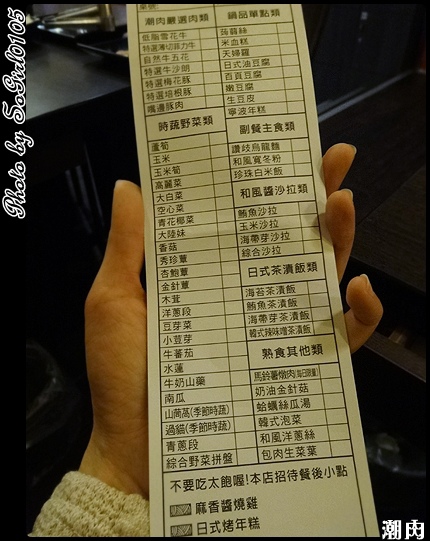 桌號
潮肉嚴選肉類
低脂雪花牛
特選薄切菲力牛
自然牛五花
特選牛沙朗
特選梅花豚
特選培根豚
嘴邊豚肉
時蔬野菜類
蘆筍
玉米
玉米筍
高麗菜
大白菜
空心菜
青花椰菜
大陸妹
香菇
秀珍蕈
杏鮑蕈
金針蕈
木茸
洋蔥段
豆芽菜
小荳芽
牛蕃茄
水蓮
牛奶山藥
南瓜
山茼萵(季節時蔬)
過貓(季節時蔬)
青蔥段
綜合野菜拼盤
鍋品單點類
蒟蒻絲
米血糕
天婦羅
日式油豆腐
百頁豆腐
嫩豆腐
生豆皮
寧波年糕
副餐主食類
讚岐烏龍麵
和風寬冬粉
珍珠白米飯
和風醬沙拉類
鮪魚沙拉
玉米沙拉
海帶芽沙拉
綜合沙拉
日式茶漬飯類
海苔茶漬飯
鮪魚茶漬飯
海帶芽茶漬飯
韓式辣味噌茶漬飯
熟食其他類
馬鈴薯燉肉(每日限量)
奶油金針菇
蛤蠣絲瓜湯
韓式泡菜
和風洋蔥絲
包肉生菜葉
不要吃太飽喔!本店招待餐後小點
麻香醬燒雞
日式烤年糕
Photo by SoGirl0105
潮肉